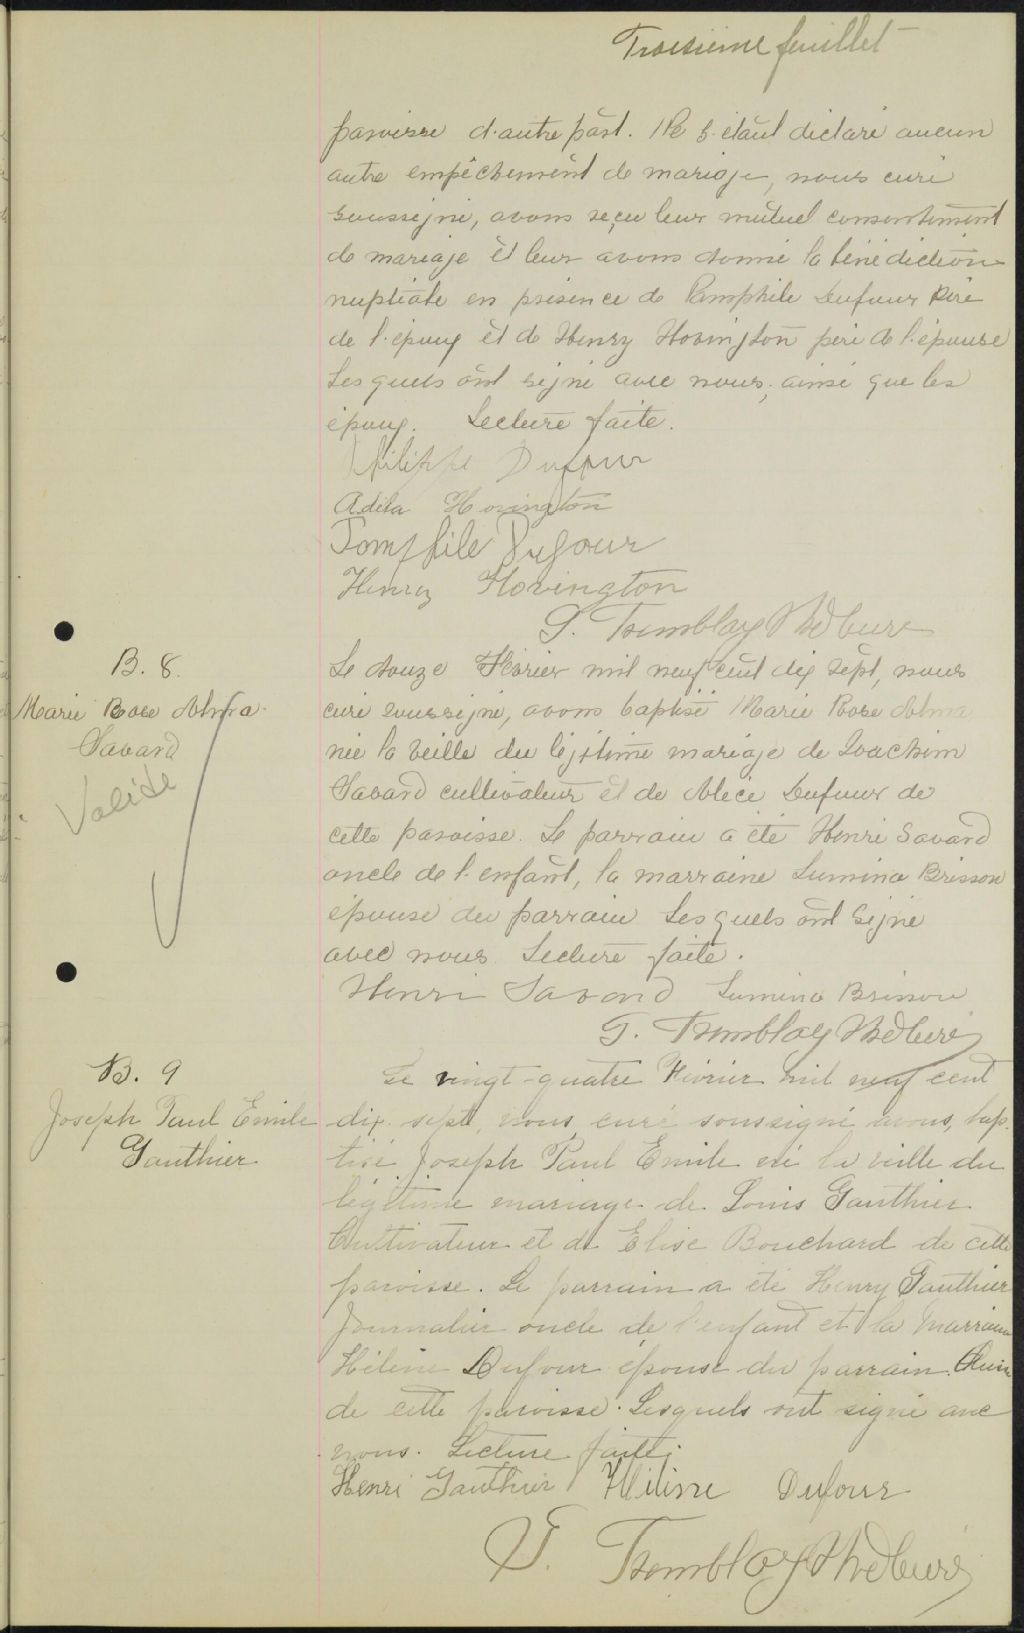 Troisième feuillet
paroisse d'autre part. Ne s'étant déclaré aucun
autre empêchement de mariage, nous curé
soussigné, avons reçu leur mutuel consentement
de mariage et leur avons donné la bénédiction
nuptiale en présence de Pamphile Dufour père
de l'époux et de Henry Hovington père de l'épouse
Lesquels ont signé avec nous, ainsi que les
époux. Lecture faite.
Philippe Dufour
Adéla Hovington
Pomphile Dufour
Henry Hovington
G. Tremblay Ptre Curé
B. 8.
Marie Rose Alma
Savard
Valide
Le douze Février mil neuf cent dix sept, nous
curé soussigné, avons baptisé Marie Rose Alma
née la veille du légitime mariage de Joachim
Savard cultivateur et de Alice Dufour de
cette paroisse. Le parrain a été Henri Savard
oncle de l'enfant, la marraine Lumina Brisson
épouse du parrain Lesquels ont signé
avec nous Lecture faite.
Henri Savard Lumina Brisson
G. Tremblay Ptre Curé
B. 9
Joseph Paul Emile
Gauthier
Le vingt-quatre Février mil neuf cent
dix sept, nous, curé soussigné avons, bap-
tisé Joseph Paul Emile né la veille du
légitime mariage de Louis Gauthier
Cultivateur et de Elise Bouchard de cette
paroisse. Le parrain a été Henry Gauthier
Journalier oncle de l'enfant et la marraine
Hélène Dufour épouse du parrain
de cette paroisse. Lesquels ont signé avec
nous. Lecture faite.
Henri Gauthier Hélène Dufour
G. Tremblay Ptre Curé